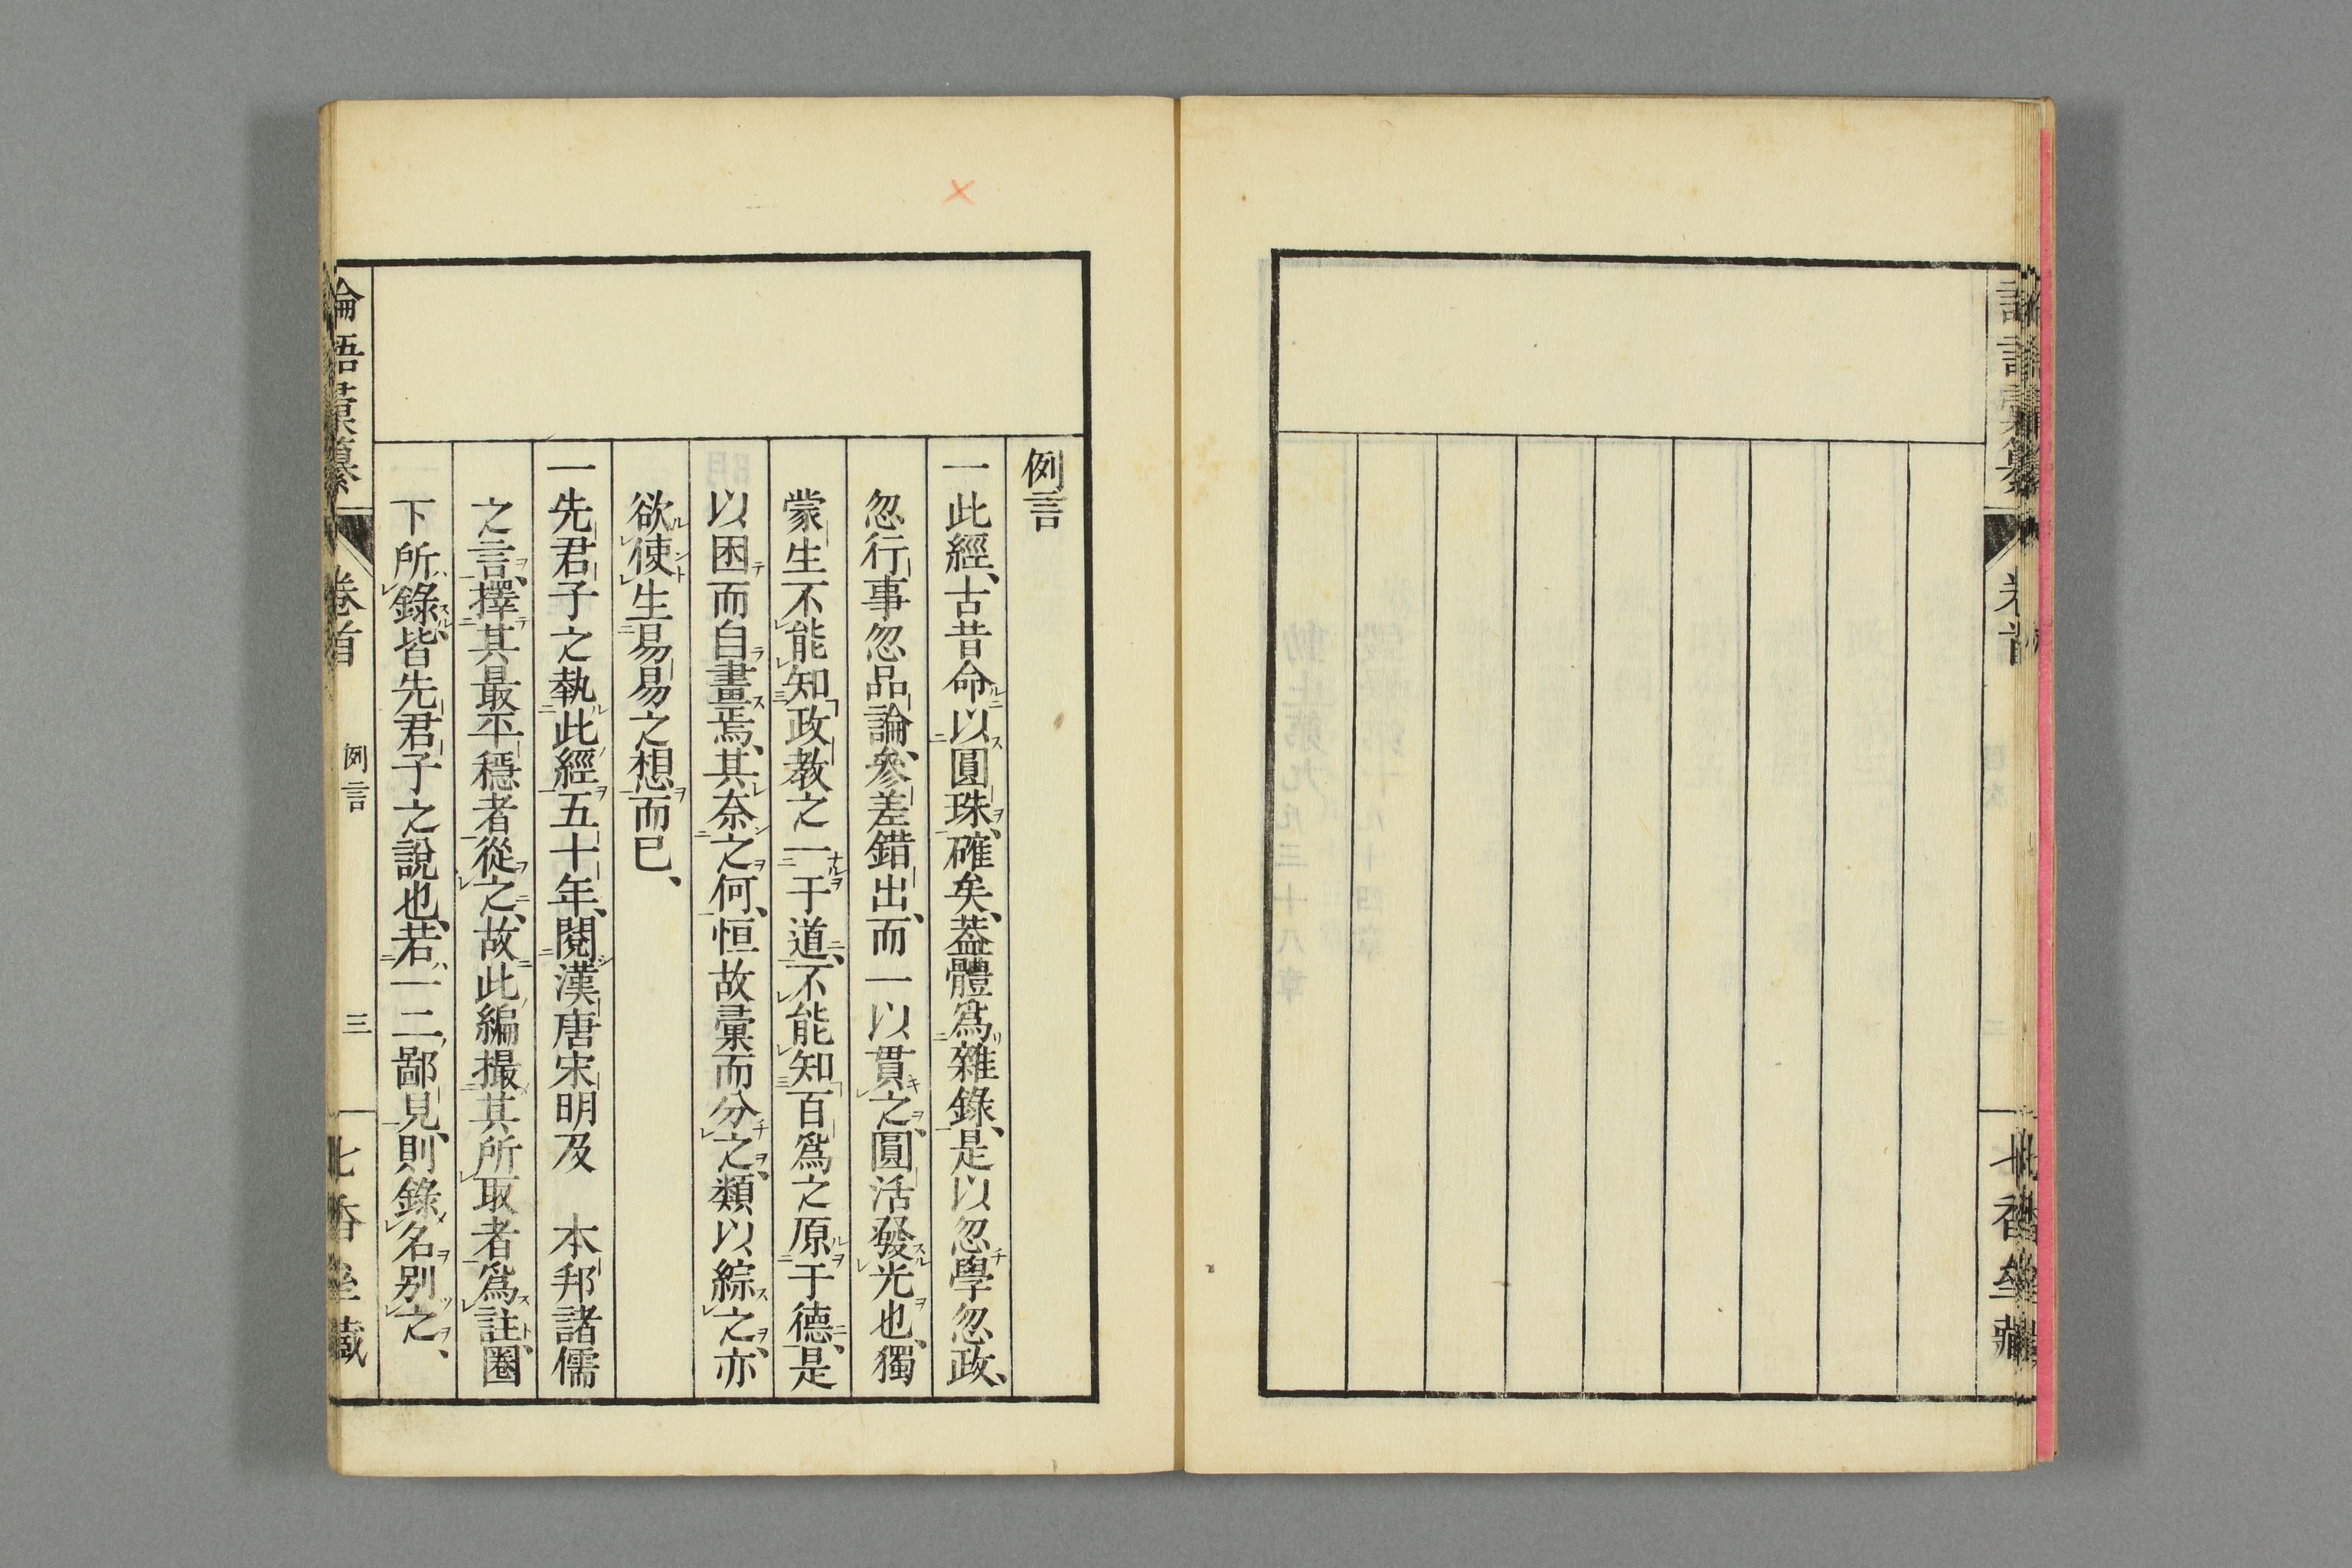 例言
一此經、古昔命以圓珠、確矣、蓋體爲雜錄、是以忽學忽政、
忽行事忽品論、參差錯出、而一以貫之、圓活發光也、獨
蒙生不能知政教之一于道、不能知百爲之原于德、是
以困而自畫焉、其奈之何、恒故彙而分之、類以綜之、亦
欲使生易易之想而已、
一先君子之執此經五十年、閱漢唐宋明及　本邦諸儒
之言、擇其最平穩者從之、故此編撮其所取者爲註、圈
下所錄、皆先君子之說也、若一二鄙見、則錄名別之、
論語彙纂　卷首　例言　三　七香堂藏